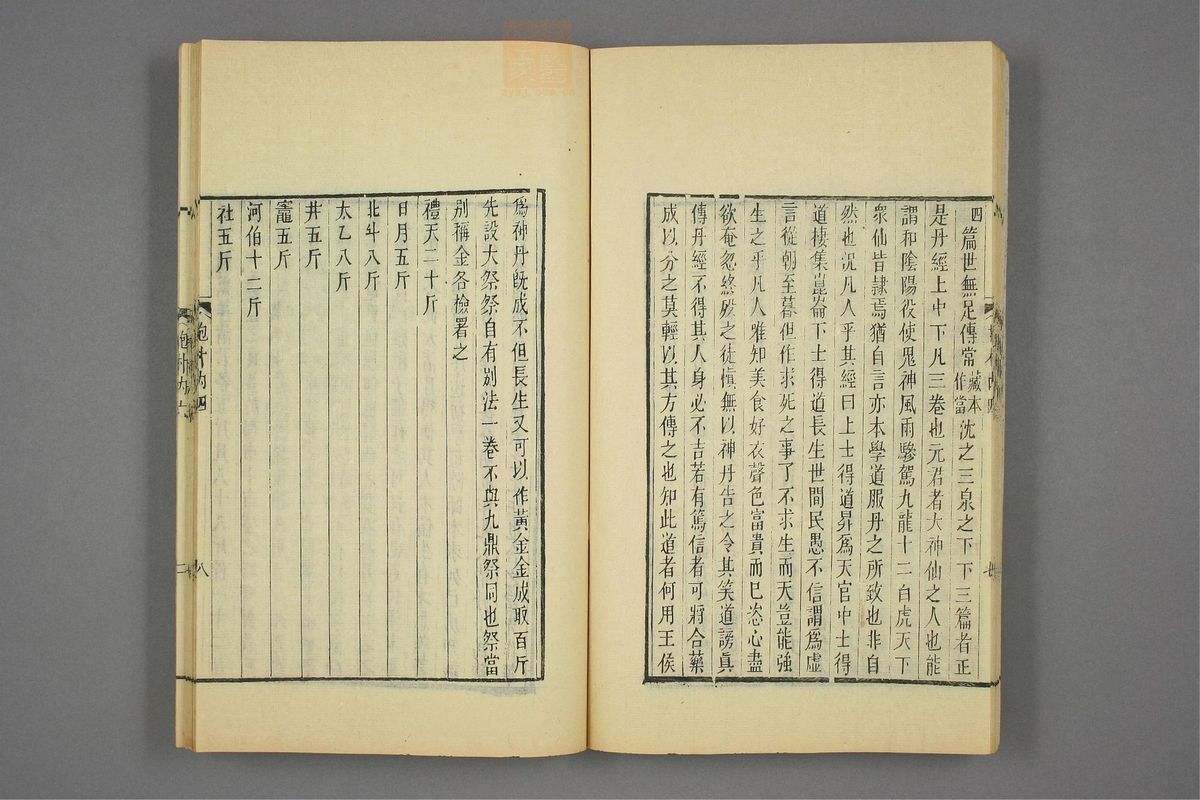 四篇世無足傳常藏本作當沈之三泉之下下三篇者正
是丹經上中下凡三卷也元君者大神仙之人也能
謂和陰陽役使鬼神風雨驂駕九龍十二白虎天下
衆仙皆隷焉猶自言亦本學道服丹之所致也非自
然也況凡人乎其經曰上士得道昇爲天官中士得
道棲集崑崙下士得道長生世間民愚不信謂爲虛
言從朝至暮但作求死之事了不求生而天豈能強
生之乎凡人唯知美食好衣聲色富貴而已恣心盡
欲奄忽終歿之徒愼無以神丹告之令其笑道謗眞
傳丹經不得其人身必不吉若有篤信者可將合藥
成以分之莫輕以其方傳之也知此道者何用王侯
爲神丹旣成不但長生又可以作黃金金成取百斤
先設大祭祭自有別法一卷不與九鼎祭同也祭當
別稱金各檢署之
禮天二十斤
日月五斤
北斗八斤
太乙八斤
井五斤
竈五斤
河伯十二斤
社五斤
抱朴内四
八